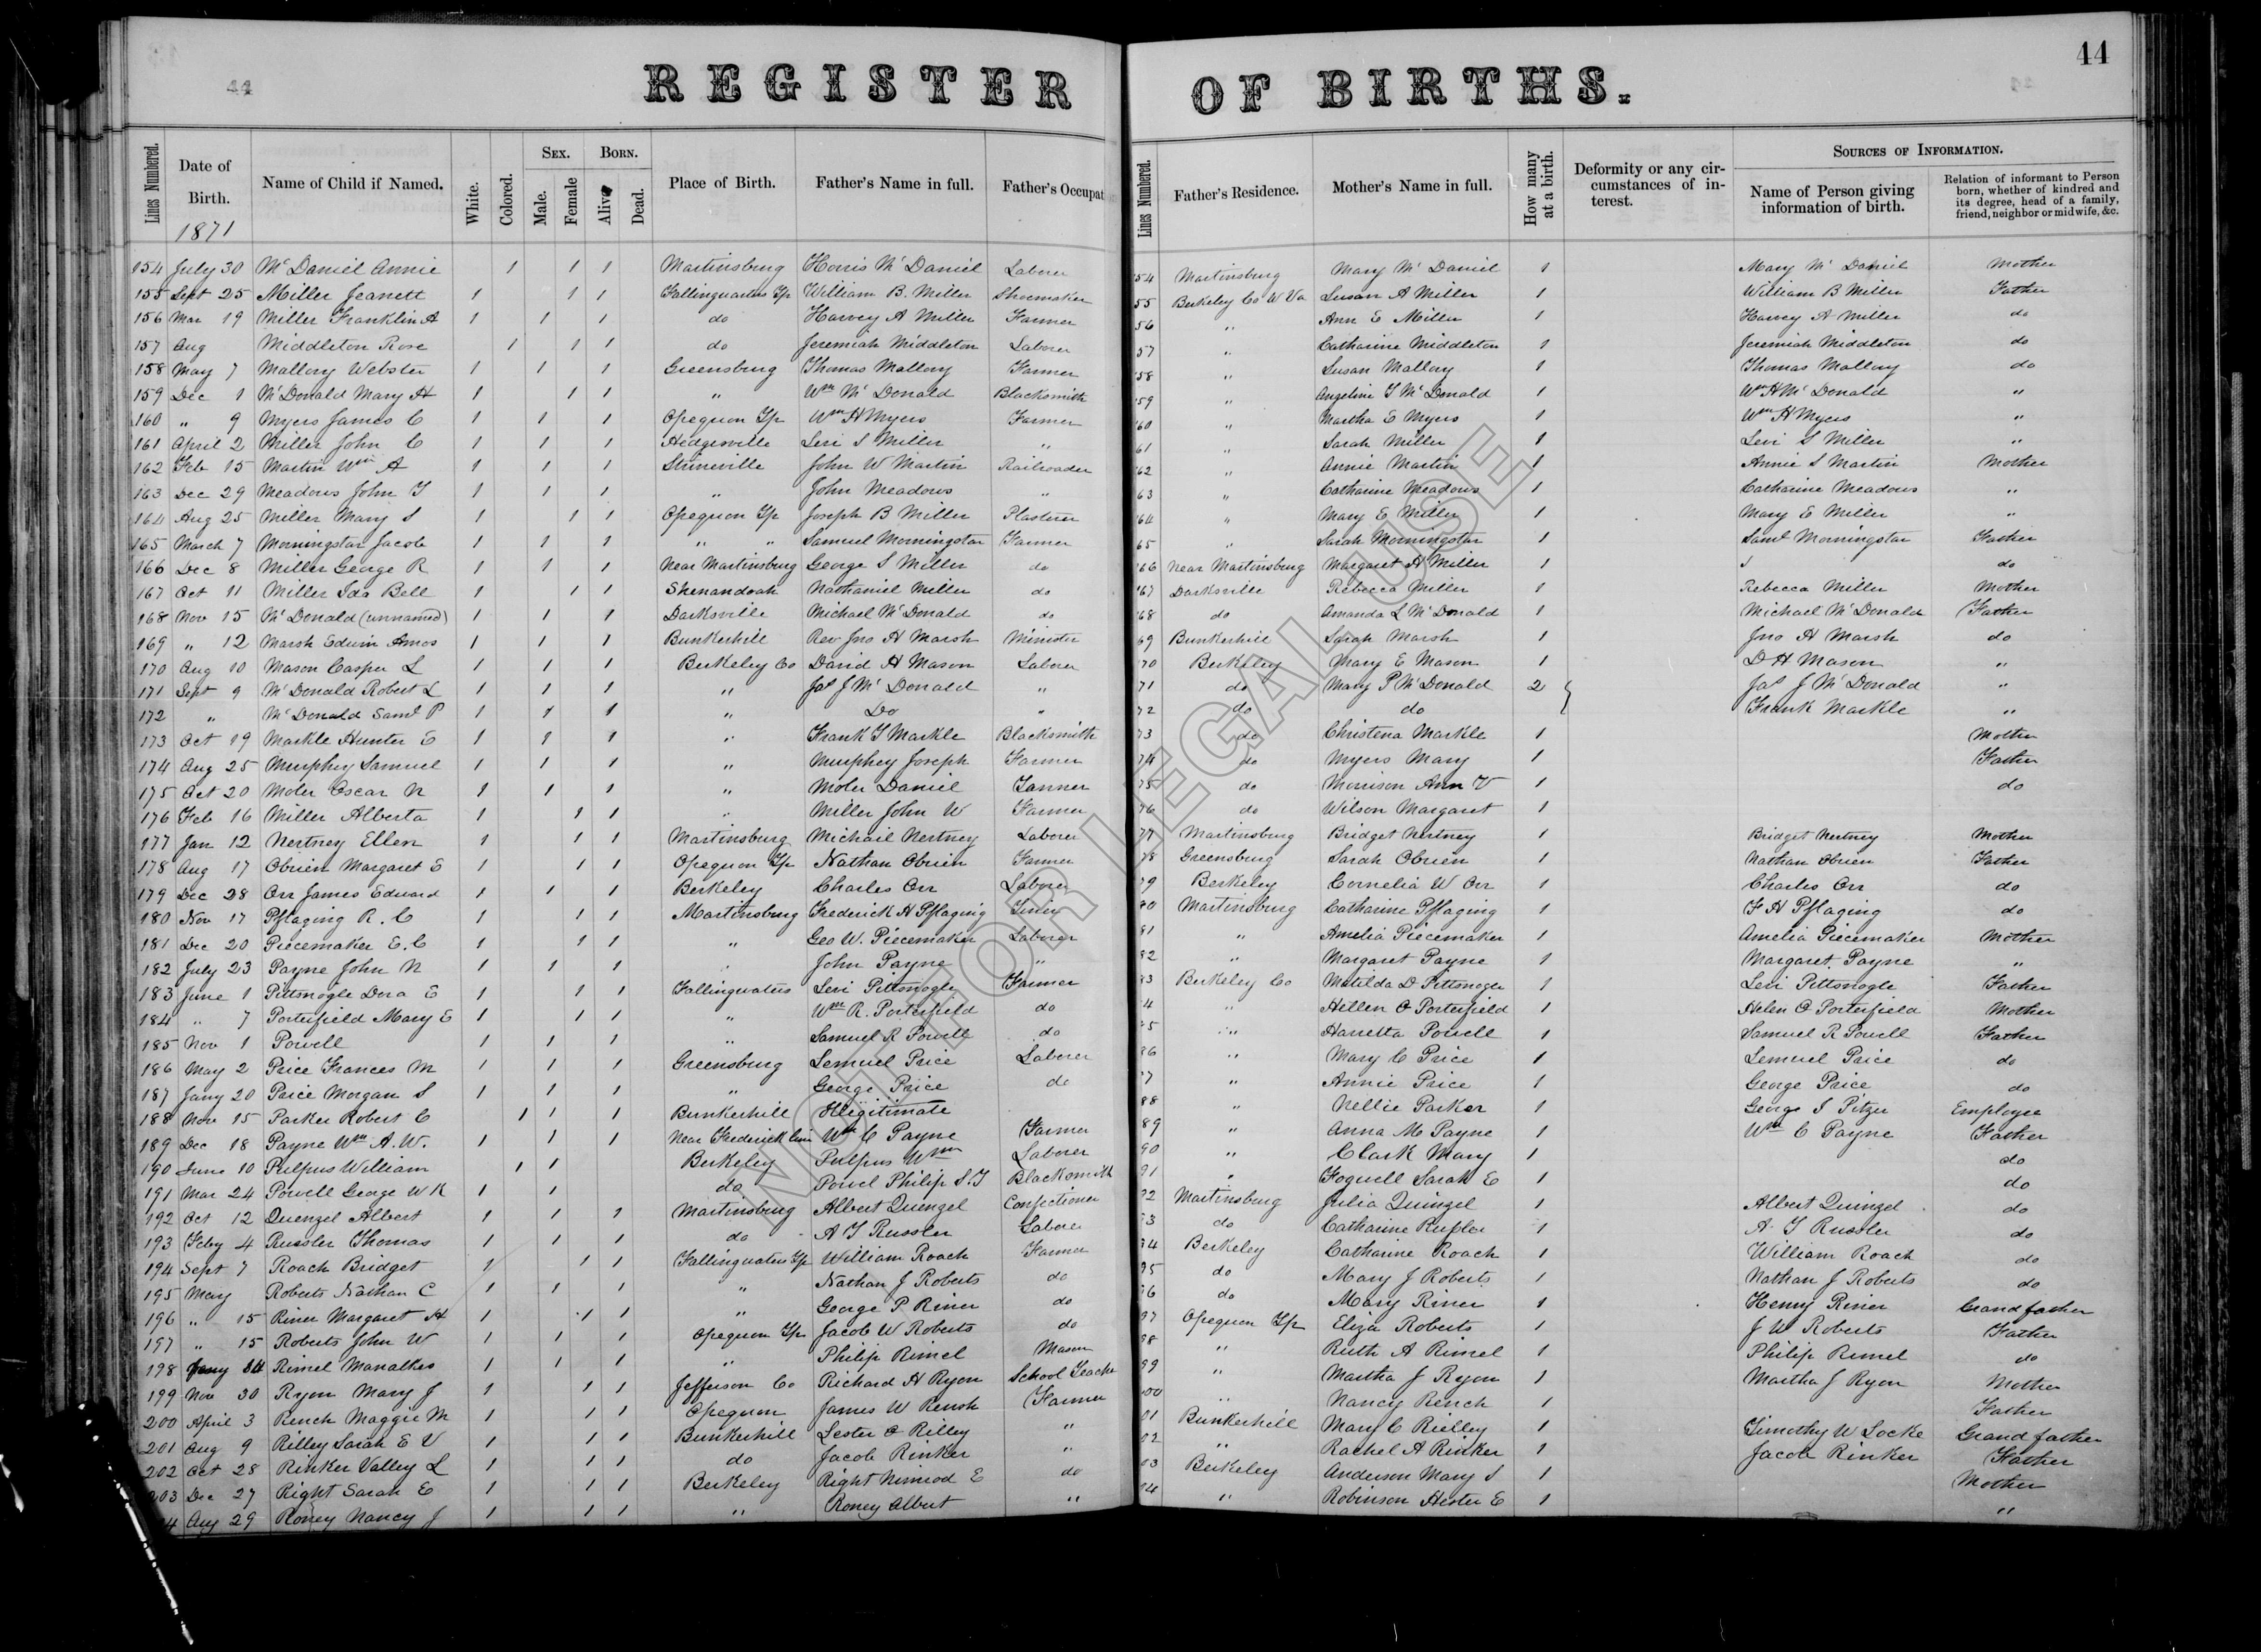 44
REGISTER OF BIRTHS.
44
Lines Numbered. Date of Birth. Name of Child if Named. White. Colored. Sex. Male. Female Born. Alive Dead. Place of Birth. Father's Name in full. Father's Occupat Lines Numbered. Father's Residence. Mother's Name in full. How many at a birth. Deformity or any circumstances of interest. Sources of Information. Name of Person giving information of birth. Relation of informant to Person born, whether of kindred and its degree, head of a family, friend, neighbor or midwife, &c.
1871
154 July 30 McDaniel Annie 1 1 1 Martinsburg Horris McDaniel Laborer 54 Martinsburg Mary McDaniel 1 Mary McDaniel Mother
155 Sept 25 Miller Jeanett 1 1 1 Fallingwaters Tp William B. Miller Shoemaker 55 Berkeley Co W Va Susan A Miller 1 William B Miller Father
156 Mar 19 Miller Franklin A 1 1 1 do Harvey A Miller Farmer 56 " Ann E Miller 1 Harvey A Miller do
157 Aug Middleton Rose 1 1 1 do Jeremiah Middleton Laborer 57 " Catharine Middleton 1 Jeremiah Middleton do
158 May 7 Mallory Webster 1 1 1 Greensburg Thomas Mallory Farmer 58 " Susan Mallory 1 Thomas Mallory do
159 Dec 1 McDonald Mary A 1 1 1 " Wm McDonald Blacksmith 59 " Angeline T McDonald 1 Wm H McDonald "
160 " 9 Myers James C 1 1 1 Opequon Tp Wm H Myers Farmer 60 " Martha E Myers 1 Wm H Myers "
161 April 2 Miller John C 1 1 1 Hedgesville Levi S Miller " 61 " Sarah Miller 1 Levi S Miller "
162 Feb 15 Martin Wm A 1 1 1 Shineville John W Martin Railroader 62 " Annie Martin 1 Annie S Martin Mother
163 Dec 29 Meadows John T 1 1 1 " John Meadows " 63 " Catharine Meadows 1 Catharine Meadows "
164 Aug 25 Miller Mary S 1 1 1 Opequon Tp Joseph B Miller Plasterer 64 " Mary E Miller 1 Mary E Miller "
165 March 7 Morningstar Jacob 1 1 1 " " Samuel Morningstar Farmer 65 " Sarah Morningstar 1 Saml Morningstar Father
166 Dec 8 Miller George R 1 1 1 Near Martinsburg George S Miller do 66 Near Martinsburg Margaret A Miller 1 do
167 Oct 11 Miller Ida Bell 1 1 1 Shenandoah Nathaniel Miller do 67 Darksville Rebecca Miller 1 Rebecca Miller Mother
168 Nov 15 McDonald (unnamed) 1 1 1 Darksville Michael McDonald do 68 do Amanda L McDonald 1 Michael McDonald Father
169 " 12 Marsh Edwin Amos 1 1 1 Bunkerhill Rev Jno H Marsh Minister 69 Bunkerhill Sarah Marsh 1 Jno H Marsh do
170 Aug 10 Mason Casper L 1 1 1 Berkeley Co David H Mason Laborer 70 Berkeley Mary E Mason 1 D H Mason "
171 Sept 9 McDonald Robert L 1 1 1 " Jas J McDonald " 71 do Mary P McDonald 2 Jas J McDonald "
172 " McDonald Saml P 1 1 1 " Do " 72 do do Frank Markle "
173 Oct 19 Markle Hunter E 1 1 1 " Frank T Markle Blacksmith 73 do Christena Markle 1 Mother
174 Aug 25 Murphey Samuel 1 1 1 " Murphey Joseph Farmer 74 do Myers Mary 1 Father
175 Oct 20 Moler Oscar N 1 1 1 " Moler Daniel Tanner 75 do Morrison Ann V 1 do
176 Feb 16 Miller Alberta 1 1 1 " Miller John W Farmer 76 do Wilson Margaret 1
177 Jan 12 Nertney Ellen 1 1 1 Martinsburg Michail Nertney Laborer 77 Martinsburg Bridget Nertney 1 Bridget Nertney Mother
178 Aug 17 Obrien Margaret E 1 1 1 Opequon Tp Nathan Obrien Farmer 78 Greensburg Sarah Obrien 1 Nathan Obrien Father
179 Dec 28 Orr James Edward 1 1 1 Berkeley Charles Orr Laborer 79 Berkeley Cornelia W Orr 1 Charles Orr do
180 Nov 17 Pflaging R. C 1 1 1 Martinsburg Frederick H Pflaging 80 Martinsburg Catharine Pflaging 1 F H Pflaging do
181 Dec 20 Piecemaker E. C 1 1 1 " Geo W. Piecemaker Laborer 81 " Amelia Piecemaker 1 Amelia Piecemaker Mother
182 July 23 Payne John N 1 1 1 " John Payne " 82 " Margaret Payne 1 Margaret Payne "
183 June 1 Pittsnogle Dora E 1 1 1 Fallingwaters Levi Pittsnogle Farmer 83 Berkeley Co Matilda D Pittsnogle 1 Levi Pittsnogle Father
184 " 7 Porterfield Mary E 1 1 1 " Wm R. Porterfield do 84 " Hellen O Porterfield 1 Helen O Porterfield Mother
185 Nov 1 Powell 1 1 1 " Samuel R Powell do 85 " Harretta Powell 1 Samuel R Powell Father
186 May 2 Price Frances M 1 1 1 Greensburg Lemuel Price Laborer 86 " Mary C Price 1 Lemuel Price do
187 Jany 20 Price Morgan S 1 1 1 " George Price do 87 " Annie Price 1 George Price do
188 Nov 15 Parker Robert C 1 1 1 Bunkerhill Illigitimate 88 " Nellie Parker 1 George S Pitzer Employee
189 Dec 18 Payne Wm A. W. 1 1 1 Near Frederick Line Wm C Payne Farmer 89 " Anna M Payne 1 Wm C Payne Father
190 June 10 Pulpus William 1 1 Berkeley Pulpus Wm Laborer 90 " Clark Mary 1 do
191 Mar 24 Powell George W K 1 1 do Powel Philip S. T Blacksmith 91 " Foguell Sarah E 1 do
192 Oct 12 Quenzel Albert 1 1 1 Martinsburg Albert Quenzel Confectioner 92 Martinsburg Julia Quinzel 1 Albert Quinzel do
193 Feby 4 Russler Thomas 1 1 1 do A T Russler Laborer 93 do Catharine 1 A. T Russler do
194 Sept 7 Roach Bridget 1 1 1 Fallingwaters Tp William Roach Farmer 94 Berkeley Catharine Roach 1 William Roach do
195 May Roberts Nathan C 1 1 1 " Nathan J Roberts do 95 do Mary J Roberts 1 Nathan J Roberts do
196 " 15 Riner Margaret A 1 1 1 " George P Riner do 96 do Mary Riner 1 Henry Riner Grandfather
197 " 15 Roberts John W 1 1 1 Opequon Tp Jacob W Roberts do 97 Opequon Tp Eliza Roberts 1 J W Roberts Father
198 Jany Rimel Manathes 1 1 1 " Philip Rimel Mason 98 " Ruth A Rimel 1 Philip Rimel do
199 Nov 30 Ryon Mary J 1 1 1 Jefferson Co Richard H Ryon School Teache 99 " Martha J Ryon 1 Martha J Ryon Mother
200 April 3 Rench Maggie M 1 1 1 Opequon James W Rench Farmer 00 " Nancy Rench 1 Father
201 Aug 9 Rilley Sarah E V 1 1 1 Bunkerhill Lester O Rilley " 01 Bunkerhill Mary C Rielley 1 Timothy W Locke Grandfather
202 Oct 28 Rinker Valley L 1 1 1 do Jacob Rinker " 02 " Rachel A Rinker 1 Jacob Rinker Father
203 Dec 27 Right Sarah E 1 1 1 Berkeley Right Nimrod E do 03 Berkeley Anderson Mary S 1 Mother
4 Aug 29 Roney Nancy J 1 1 1 " Roney Albert " 04 " Robinson Hester E 1 "
NOT FOR LEGAL USE